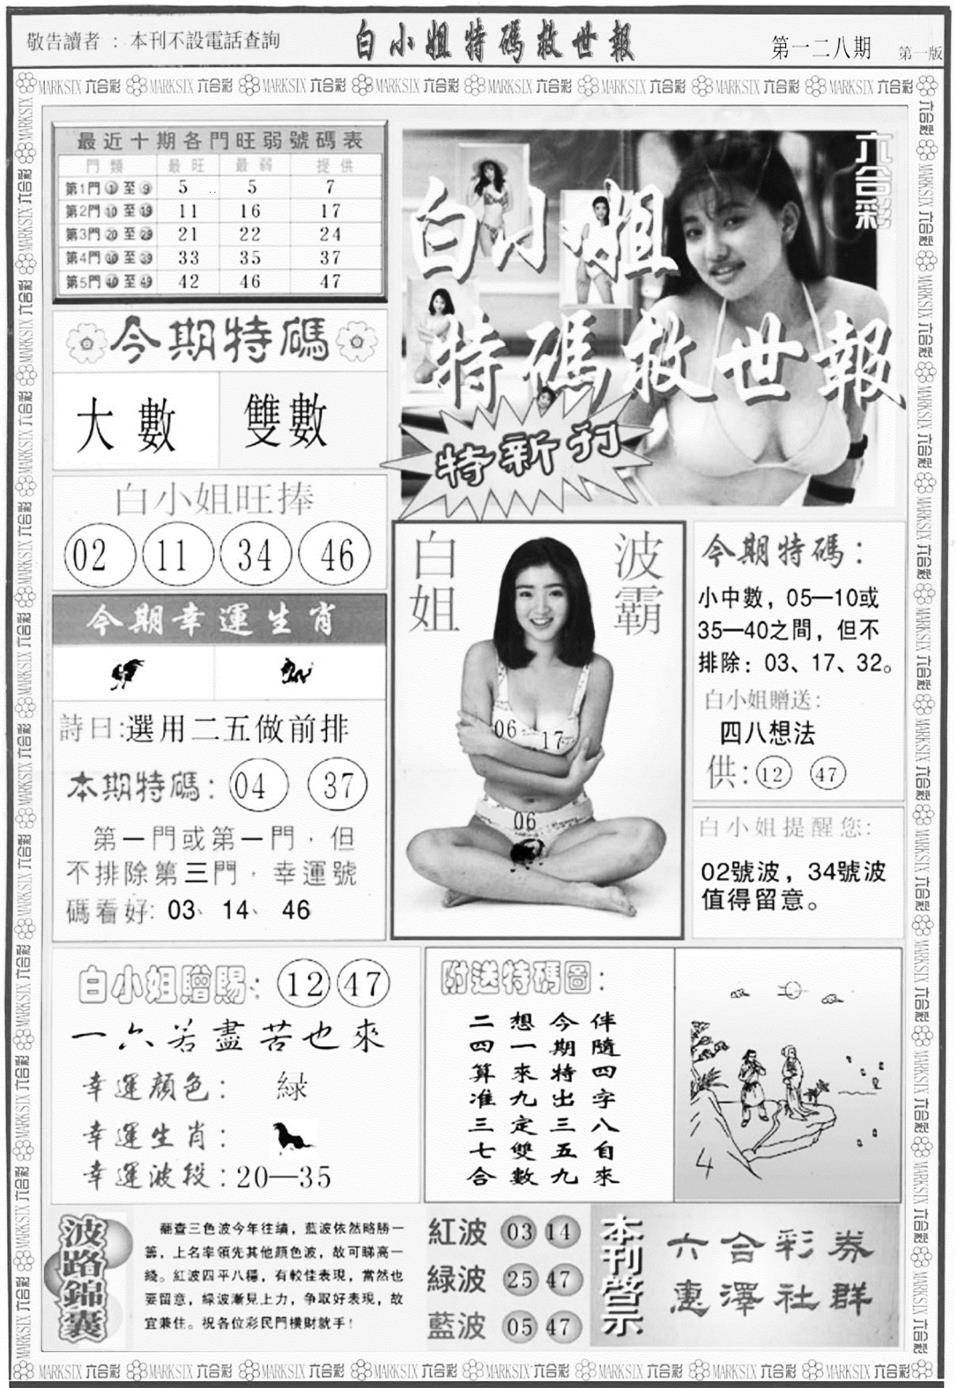 敬告讀者：本刊不設電話查詢
白小姐特碼救世報
第一二八期
第一版
MARKSIX 六合彩
最近十期各門旺弱號碼表
門類 最旺 最弱 提供
第1門①至⑨ 5 5 7
第2門⑩至⑲ 11 16 17
第3門⑳至㉙ 21 22 24
第4門㉚至㊴ 33 35 37
第5門㊵至㊾ 42 46 47
六合彩
白小姐
特碼救世報
特新刊
今期特碼
大數 雙數
白小姐旺捧
02 11 34 46
今期幸運生肖
詩曰:選用二五做前排
本期特碼：04 37
第一門或第一門，但
不排除第三門，幸運號
碼看好:03、14、46
白姐
波霸
06 17
06
今期特碼：
小中數，05—10或
35—40之間，但不
排除：03、17、32。
白小姐贈送:
四八想法
供：12 47
白小姐提醒您:
02號波，34號波
值得留意。
白小姐贈賜：12 47
一六若盡苦也來
幸運顏色： 綠
幸運生肖：
幸運波段:20—35
附送特碼圖：
伴隨四字八自來
今期特出三五九
想一來九定雙數
二四算准三七合
4
波路錦囊
翻查三色波今年往績，藍波依然略勝一
籌，上名率領先其他顏色波，故可睇高一
綫。紅波四平八穩，有較佳表現，當然也
要留意，綠波漸見上力，爭取好表現，故
宜兼住。祝各位彩民門橫財就手！
紅波 03 14
綠波 25 47
藍波 05 47
本刊啓示
六合彩券
惠澤社群